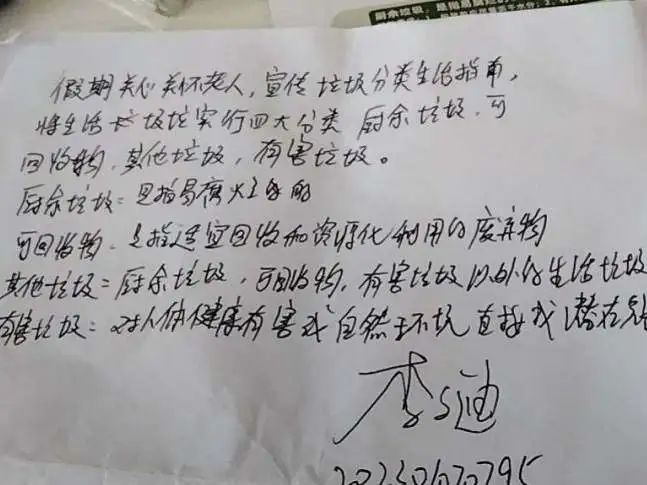 假期关心关怀老人，宣传垃圾分类生活指南，
将生活垃圾垃实行四大分类 厨余垃圾、可
回收物、其他垃圾，有害垃圾。
厨余垃圾：是指易腐
可回收物：是指适宜回收和资源化利用的废弃物
其他垃圾：厨余垃圾，可回收物，有害垃圾以外的生活垃圾
有害垃圾：对人体健康有害或自然环境直接或潜在
李